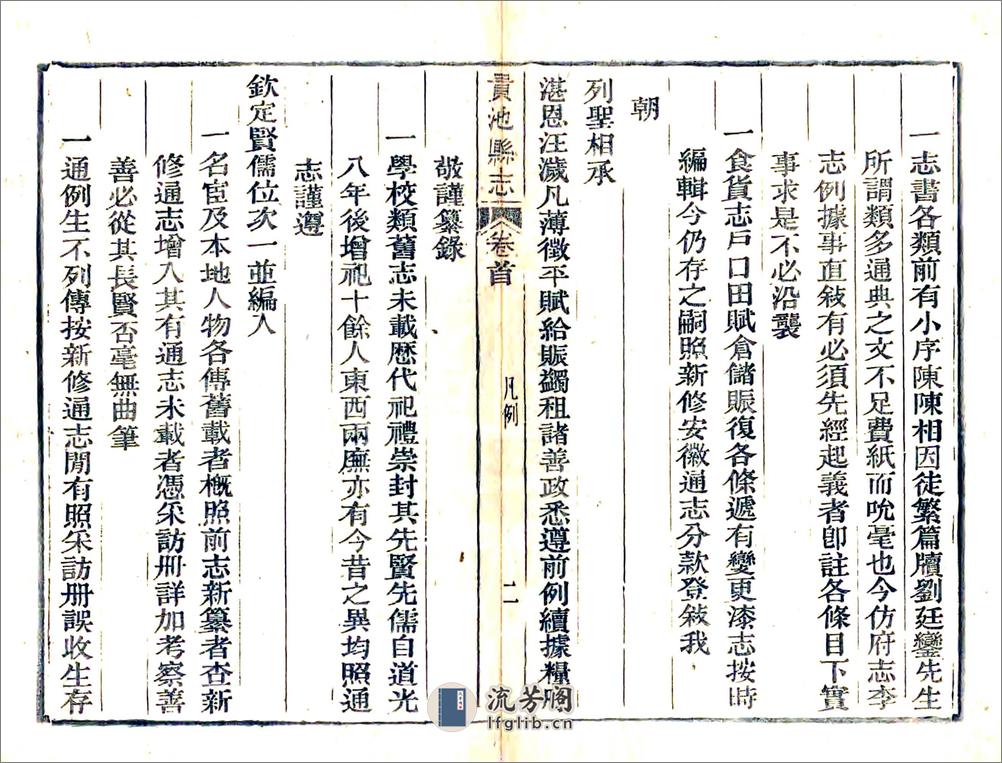 一志書各類前有小序陳陳相因徒繁篇牘劉廷鑾先生
所謂類多通典之文不足費紙而吮毫也今仿府志李
志例據事直敍有必須先經起義者卽註各條目下實
事求是不必沿襲
一食貨志戸口田賦倉儲賑復各條遞有變更漆志按時
編輯今仍存之嗣照新修安徽通志分款登敍我
朝
列聖相承
湛恩汪濊凡薄徵平賦給賑蠲租諸善政悉遵前例續據糧
貴池縣志
卷首
凡例
二
敬謹纂錄
一學校類舊志未載歷代祀禮崇封其先賢先儒自道光
八年後增祀十餘人東西兩廡亦有今昔之異均照通
志謹遵
欽定賢儒位次一並編入
一名宦及本地人物各傳舊載者概照前志新纂者查新
修通志增入其有通志未載者憑采訪冊詳加考察善
善必從其長賢否毫無曲筆
一通例生不列傳按新修通志閒有照采訪册誤收生存
流芳阁
lfglib.cn